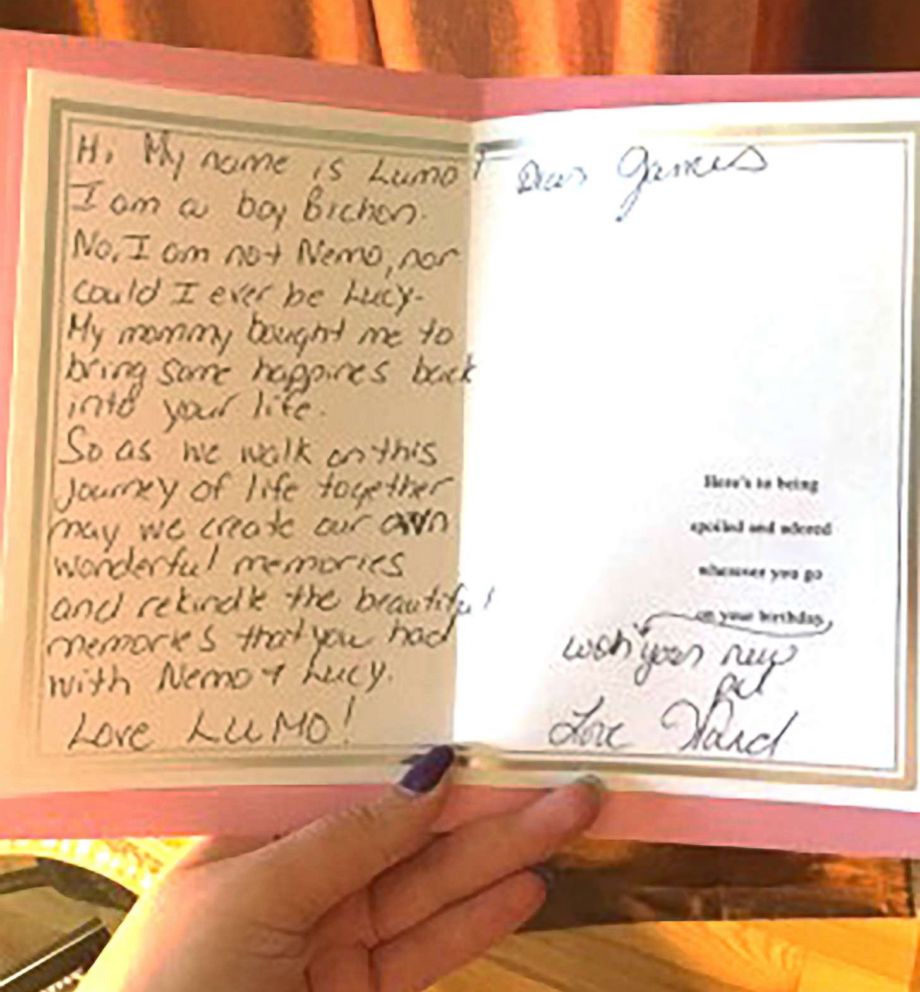 Hi My name is Lumo!
I am a boy Bichon.
No, I am not Nemo, nor
could I ever be Lucy.
My mommy bought me to
bring some happines back
into your life.
So as we walk on this
journey of life together
may we create our own
wonderful memories
and rekindle the beautiful
memories that you had
with Nemo & Lucy.
Love LUMO!
Dear James
Here's to being
spoiled and adored
wherever you go
on your birthday.
with your new
Love